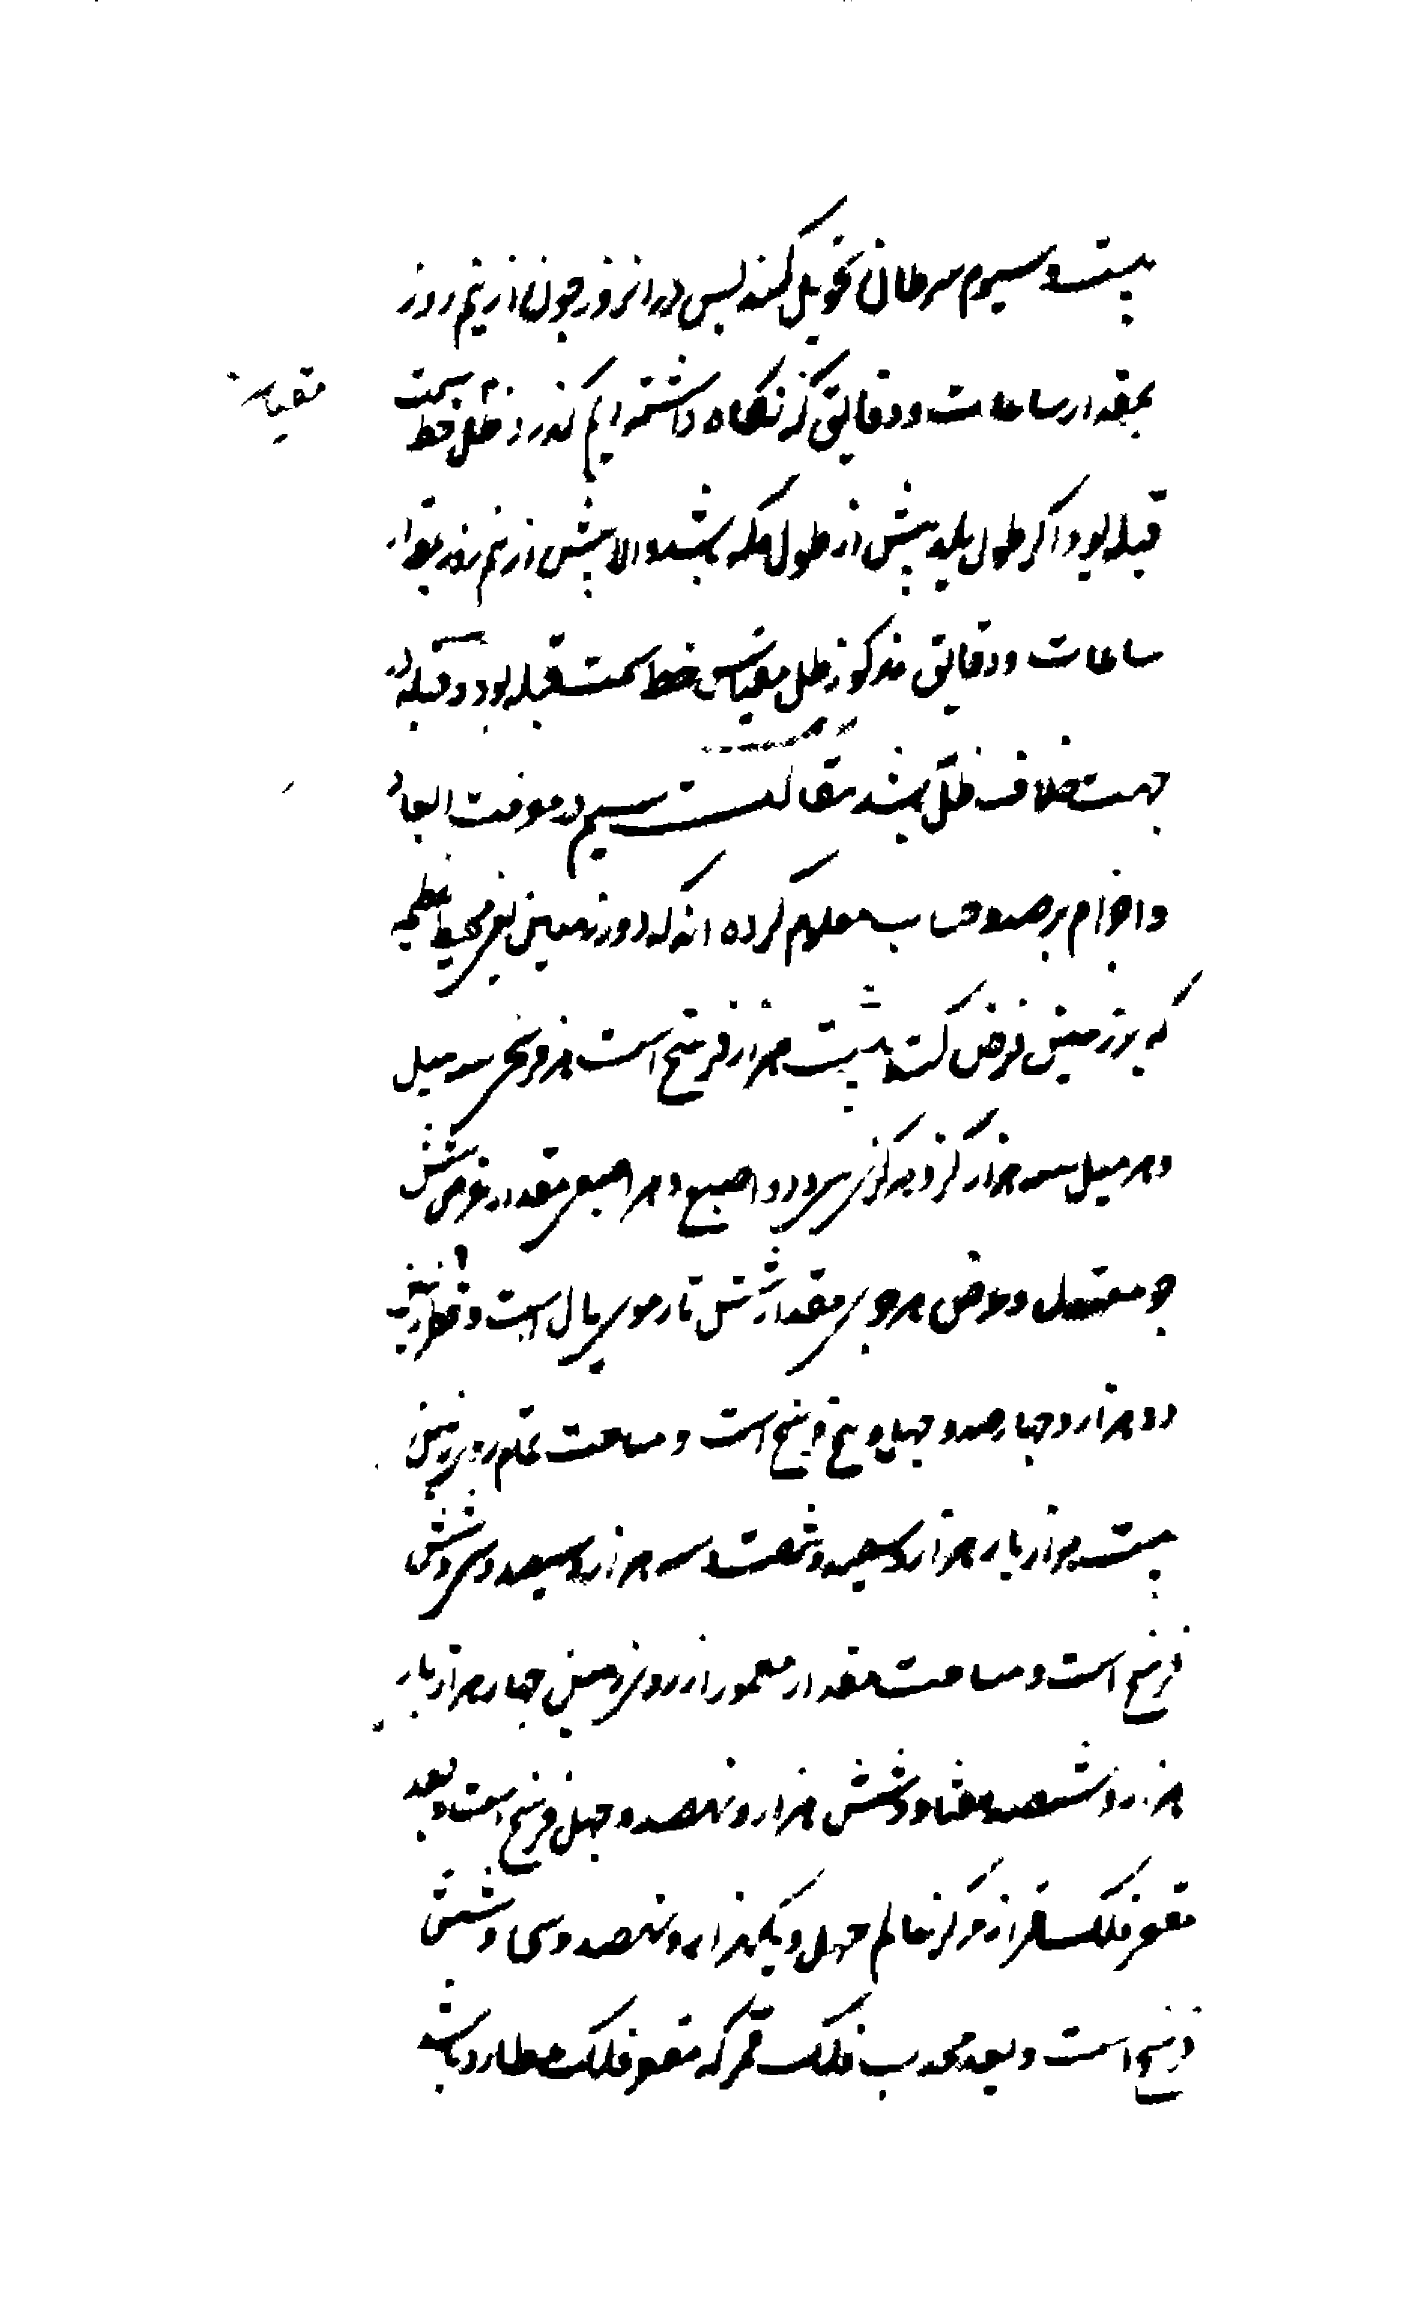 بیست و سیوم سرطان تحویل کند پس در انروز چون از نیم روز
بمقدار ساعات و دقایق که نکاه داشته ایم کذرد ظل خط سمت
مقیاس
قبله بود اکر طول بلد بیش از طول مکه باشد والا پیش از نیم روز بمقدار
ساعات و دقایق مذکور ظل مقیاس خط سمت قبله بود و قبله در
جهت خلاف ظل باشد مقالت سیم در معرفت ابعاد
و اجرام برصد و حساب معلوم کرده اند که دور زمین یعنی محیط عظیمه
که بر زمین فرض کنند هشت هزار فرسخ است هر فرسخی سه میل
و هر میل سه هزار کز و هر کزی سی و دو اصبع و هر اصبعی مقدار عرض شش
جو معتدل و عرض هر جوی مقدار شش تار موی یال اسب و قطر زمین
دو هزار و چهارصد و چهل و پنج فرسخ است و مساحت تمام روی زمین
بیست هزار بار هزار و سیصد و شصت و سه هزار و سیصد و سی و شش
فرسخ است و مساحت مقدار معمور از روی زمین چهار هزار بار
هزار و ششصد و هفتاد و شش هزار و نهصد و چهل فرسخ است و بعد
مقعر فلک قمر از مرکز عالم چهل و یکهزار و نهصد و سی و شش
فرسخ است و بعد محدب فلک قمر که مقعر فلک عطارد باشد